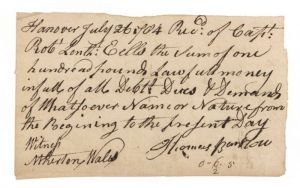 Hanover July 26 1784 Recd. of Capt.
Robt. Lenth. Eells the Sum of one
hundred pounds Lawfull money
in full of all Debts Dues & Demands
of Whatsoever Name or Nature from
the Begining to the present Day
Witness
Thomas
Atherton Wales
0-6-5
2